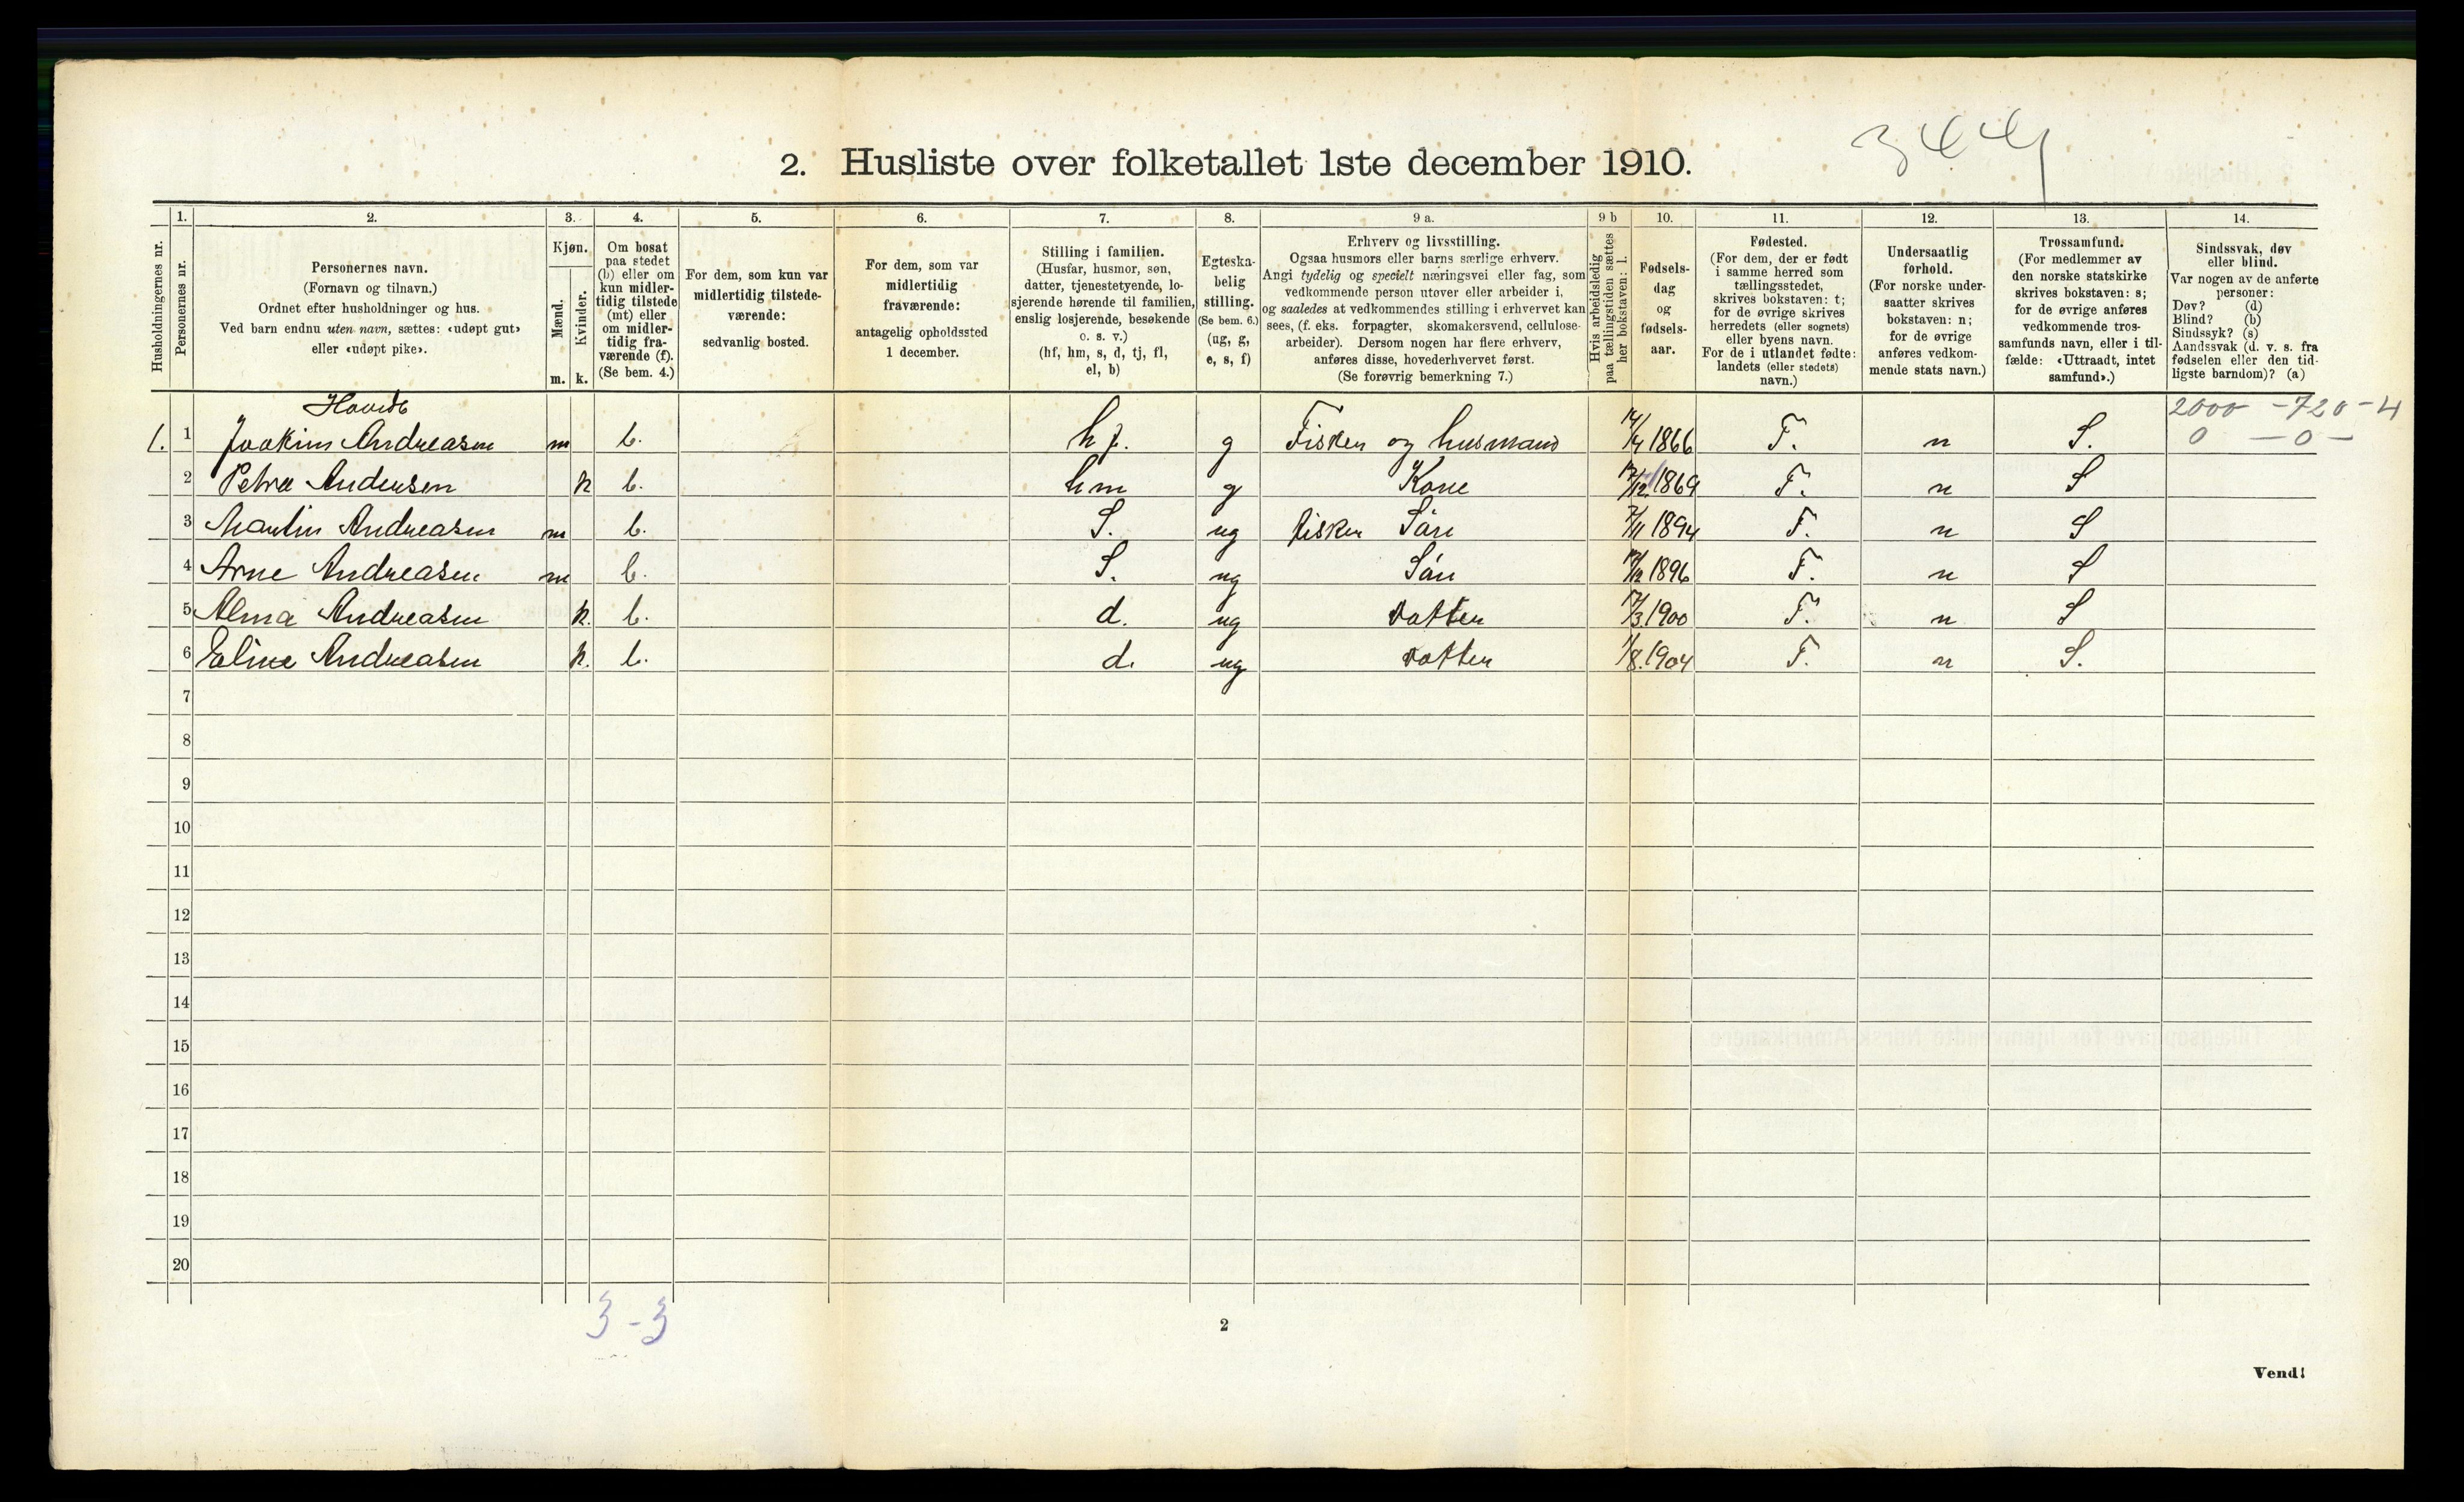 344
2. Husliste over folketallet 1ste december 1910.
Husholdningernes nr.
1.
Personernes nr.
2.
Personernes navn.
(Fornavn og tilnavn.)
Ordnet efter husholdninger og hus.
Ved barn endnu uten navn, sættes: «udøpt gut»
eller «udøpt pike».
3.
Kjøn.
Mænd.
Kvinder.
m. k.
4.
Om bosat
paa stedet
(b) eller om
kun midler-
tidig tilstede
(mt) eller
om midler-
tidig fra-
værende (f).
(Se bem. 4.)
5.
For dem, som kun var
midlertidig tilstede-
værende:
sedvanlig bosted.
6.
For dem, som var
midlertidig
fraværende:
antagelig opholdssted
1 december.
7.
Stilling i familien.
(Husfar, husmor, søn,
datter, tjenestetyende, lo-
sjerende hørende til familien,
enslig losjerende, besøkende
o. s. v.)
(hf, hm, s, d, tj, fl,
el, b)
8.
Egteska-
belig
stilling.
(Se bem. 6.)
(ug, g,
e, s, f)
9 a.
Erhverv og livsstilling.
Ogsaa husmors eller barns særlige erhverv.
Angi tydelig og specielt næringsvei eller fag, som
vedkommende person utøver eller arbeider i,
og saaledes at vedkommendes stilling i erhvervet kan
sees, (f. eks. forpagter, skomakersvend, cellulose-
arbeider). Dersom nogen har flere erhverv,
anføres disse, hovederhvervet først.
(Se forøvrig bemerkning 7.)
9 b
Hvis arbeidsledig
paa tællingstiden sættes
her bokstaven: l.
10.
Fødsels-
dag
og
fødsels-
aar.
11.
Fødested.
(For dem, der er født
i samme herred som
tællingsstedet,
skrives bokstaven: t;
for de øvrige skrives
herredets (eller sognets)
eller byens navn.
For de i utlandet fødte:
landets (eller stedets)
navn.)
12.
Undersaatlig
forhold.
(For norske under-
saatter skrives
bokstaven: n;
for de øvrige
anføres vedkom-
mende stats navn.)
13.
Trossamfund.
(For medlemmer av
den norske statskirke
skrives bokstaven: s;
for de øvrige anføres
vedkommende tros-
samfunds navn, eller i til-
fælde: «Uttraadt, intet
samfund».)
14.
Sindssvak, døv
eller blind.
Var nogen av de anførte
personer:
Døv? (d)
Blind? (b)
Sindssyk? (s)
Aandssvak (d. v. s. fra
fødselen eller den tid-
ligste barndom)? (a)
2000 - 720 - 4
1. 1 Joakim Andreasen m b. hf. g Fisker og husmand 14/4 1866 T. n S. 0 - 0 -
2 Petra Andersen k b. hm g Kone 12/12 1869 T. n S
3 Martin Andreasen m b. S. ug fisker Sön 7/11 1894 T. n S
4 Arne Andreasen m b. S. ug Sön 12/12 1896 T. n S
5 Alma Andreasen k. b. d. ug datter 17/3 1900 T. n S
6 Eline Andreasen k. b. d. ug datter 1/8. 1904 T. n S.
7
8
9
10
11
12
13
14
15
16
17
18
19
20
3 - 3
2
Vend!